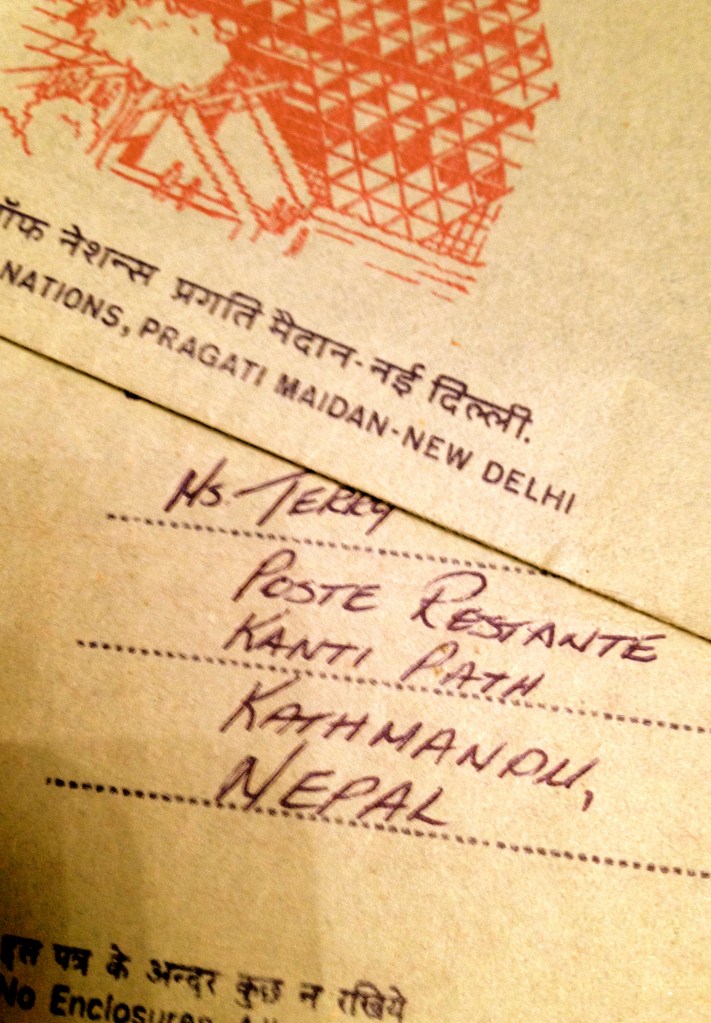 ऑफ नेशन्स प्रगति मैदान-नई दिल्ली.
NATIONS, PRAGATI MAIDAN-NEW DELHI
Ms. TERRY
POSTE RESTANTE
KANTI PATH
KATHMANDU,
NEPAL
इस पत्र के अन्दर कुछ न रखिये
No Enclosures